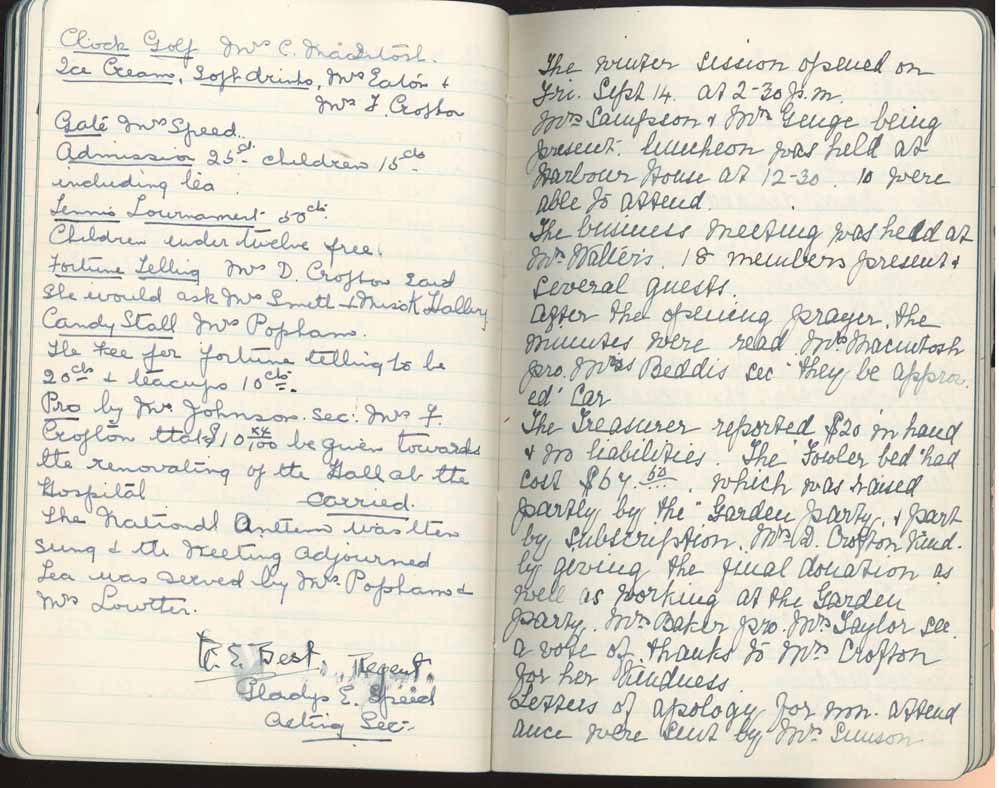 Clock Golf Mrs C. Macintosh.
Ice Cream, Soft drinks, Mrs Eaton &
Mrs F. Crofton
Gate Mrs Speed.
Admission 25cts children 15cts
including tea
Tennis Tournament 50cts.
Children under twelve free.
Fortune Telling Mrs D. Crofton said
she would ask Mrs Smett & Miss K. Halley
Candy Stall Mrs Popham.
The Fee for fortune telling to be
20cts & teacups 10cts.
Pro by Mrs Johnson. Sec: Mrs F.
Crofton that $10 xx/100 be given towards
the renovating of the Hall at the
Hospital carried.
The National Antem was then
sung & the Meeting adjourned
Tea was served by Mrs Popham &
Mrs Lowther.
E. Best, Regent.
Gladys E. Speed
Acting Sec:
The winter session opened on
Fri. Sept 14. at 2-30 p.m.
Mrs Sampson & Mrs Genge being
present. Luncheon was held at
Harbour House at 12-30. 10 were
able to attend.
The business meeting was held at
Mrs Walters. 18 members present &
several guests.
After the opening prayer, the
minutes were read. Mrs Macintosh
pro. Mrs Beddis sec "they be approv-
ed" Car
The Treasurer reported $20 in hand
& no liabilities. The Fowler bed had
cost $67.50, which was raised
partly by the Garden Party, & part
by subscription. Mrs D. Crofton kind-
ly giving the final donation as
well as working at the Garden
Party. Mrs Baker pro. Mrs Taylor sec.
a vote of thanks to Mrs Crofton
for her kindness.
Letters of apology for non. attend
ance were sent by Mrs Simson